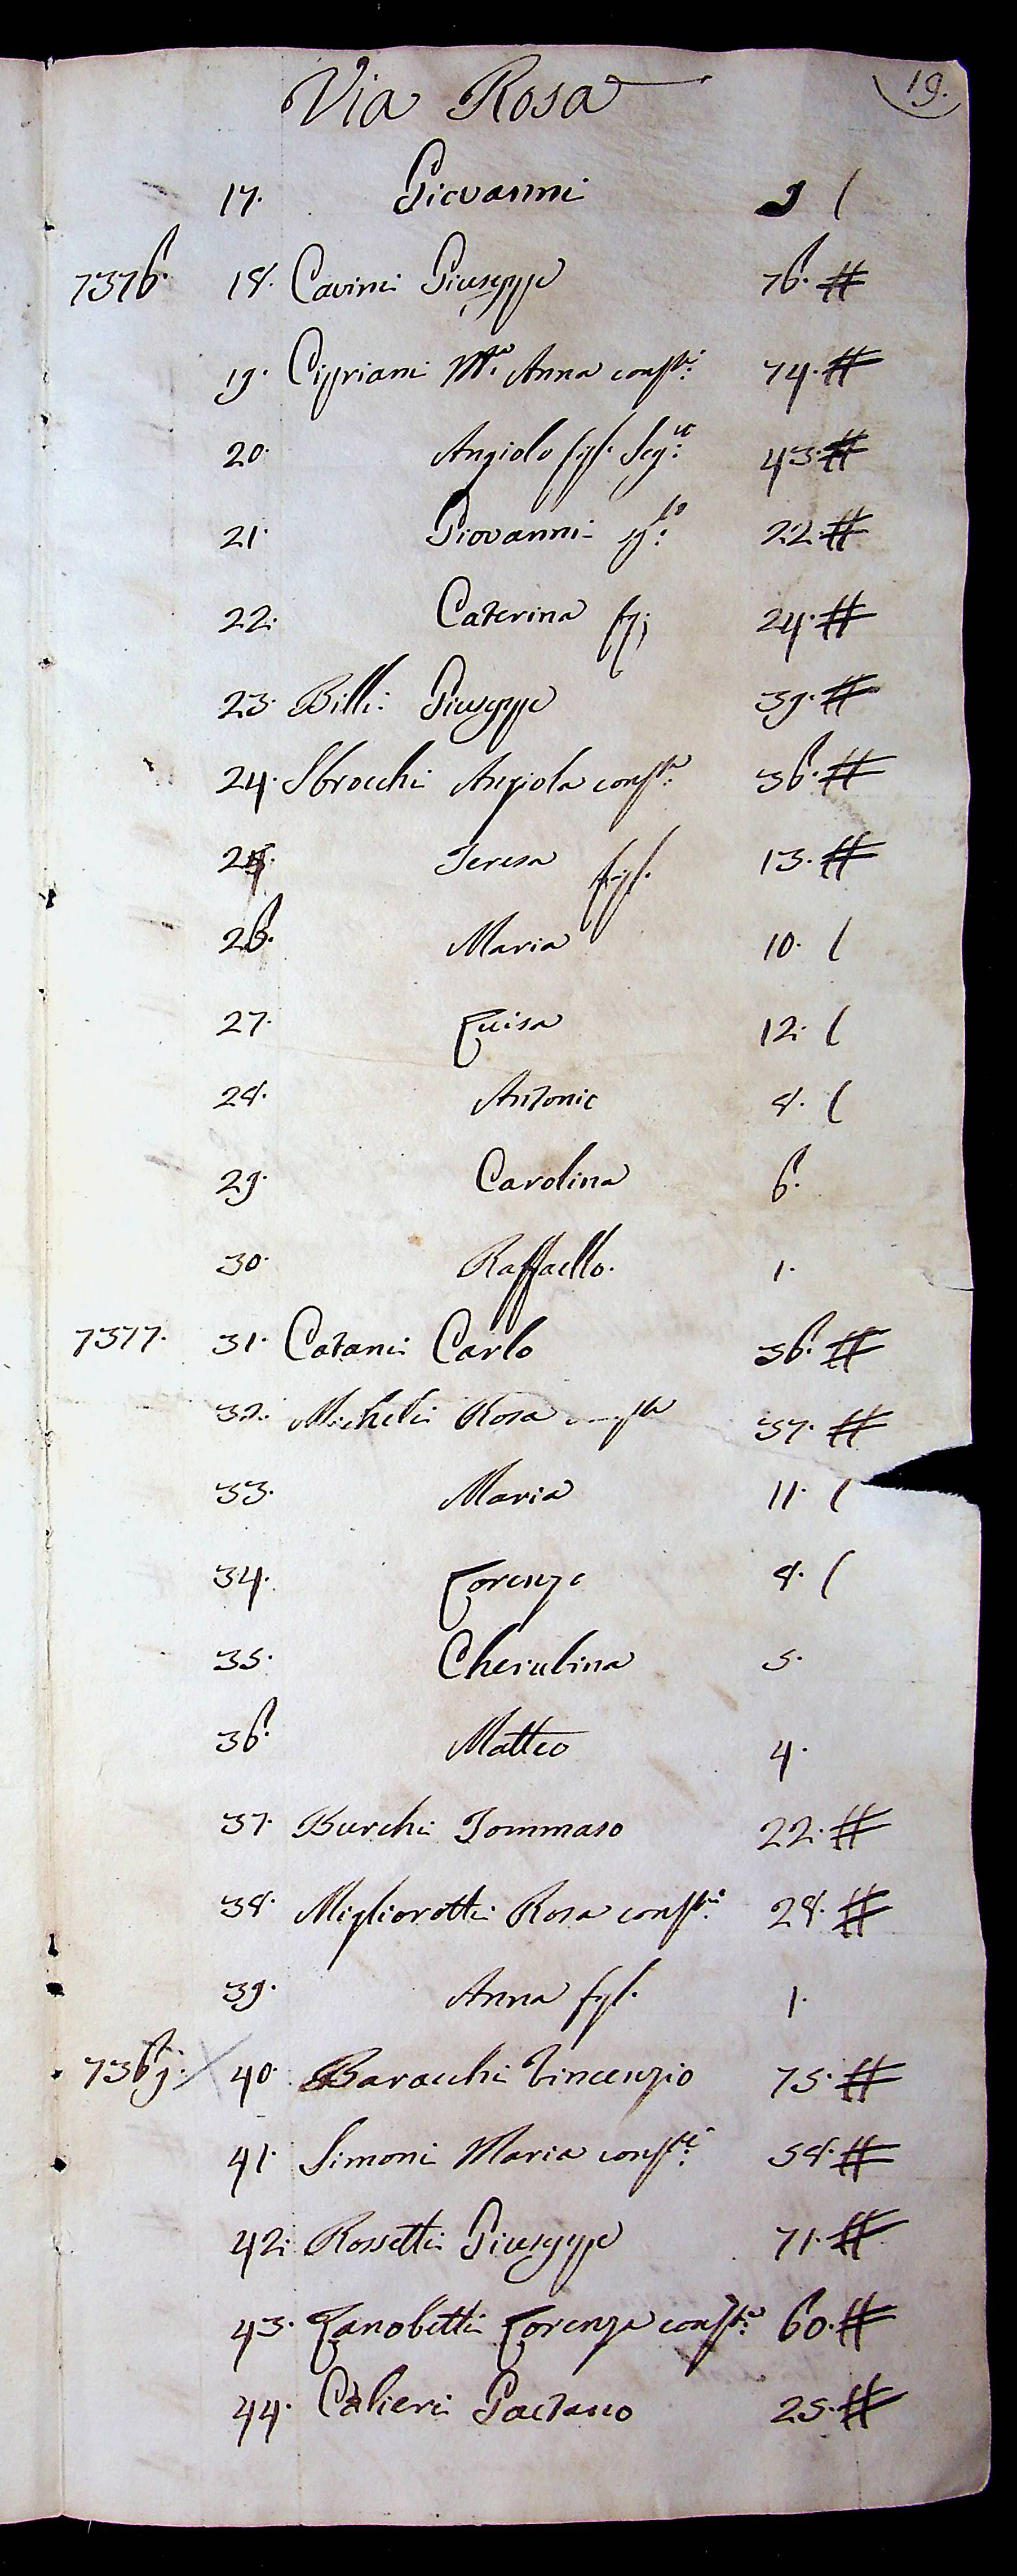 Via Rosa 19.
17. Giovanni 9 (
7376. 18. Cavini Giuseppe 76. #
19. Cipriani Mª. Anna conste: 74. #
20. Angiolo figl. Seg:to 43. #
21. Giovanni gg:to 22. #
22. Caterina fg; 24. #
23. Billi Giuseppe 39. #
24. Sbrocchi Angiola conste: 36. #
25. Teresa figl. 13. #
26. Maria 10. (
27. Luisa 12. (
28. Antonio 8. (
29. Carolina 6.
30. Raffaello. 1.
7377. 31. Catani Carlo 36. #
32. Micheli Rosa conste 37. #
33. Maria 11. (
34. Lorenzo 8. (
35. Cherubina 5.
36. Matteo 4.
37. Burchi Tommaso 22. #
38. Migliorotti Rosa conste: 28. #
39. Anna fgl. 1.
7369. 40. Baracchi Vincenzio 75. #
41. Simoni Maria conste: 58. #
42. Rossetti Giuseppe 71. #
43. Zanobetti Lorenza conste: 60. #
44. Calieri Gaetano 25. #